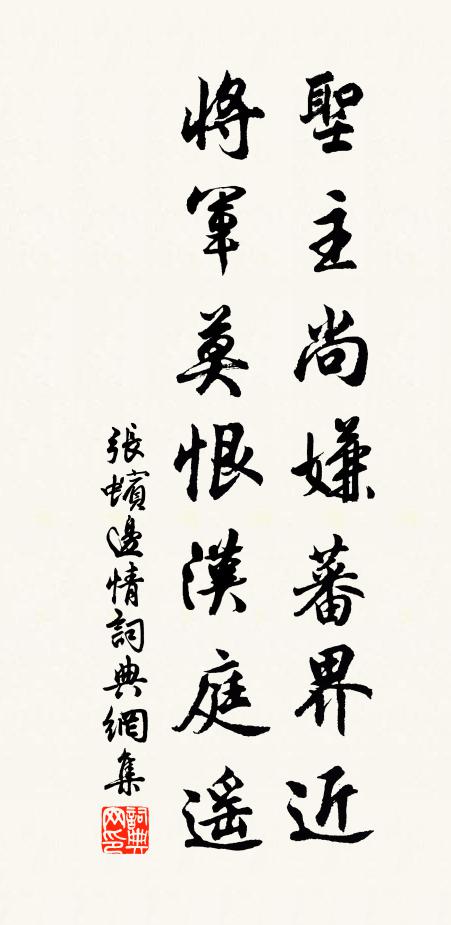 聖主尚嫌蕃界近
將軍莫恨漢庭遥
張蠙邊情詞典網集
詞典網印